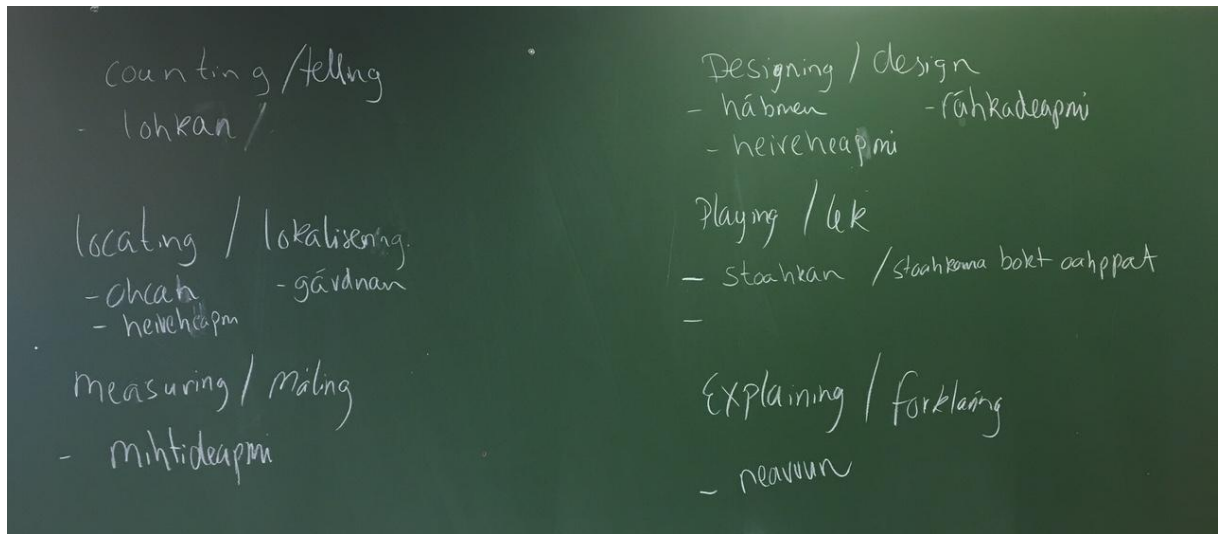 counting / telling
- lohkan /
locating / lokalisering.
- ohcan - gávdnan
- heiveheapmi
measuring / måling
- mihtideapmi
Designing / design
- hábmen - ráhkadeapmi
- heiveheapmi
Playing / lek
- stoahkan / stoahkama bokt oahppat
-
Explaining / forklaring
- neavvun